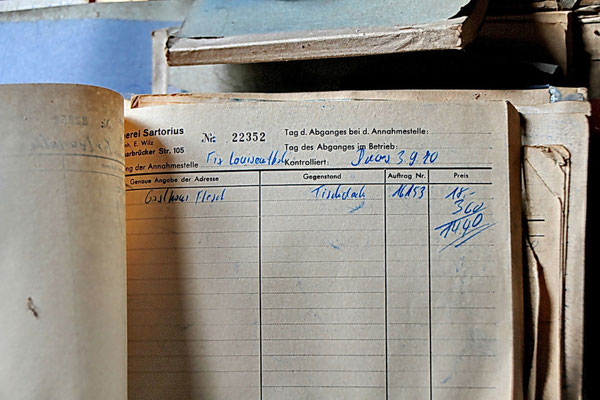 erei Sartorius
Nr. 22352
Tag d. Abganges bei d. Annahmestelle:
nh. E. Wilz
Tag des Abganges im Betrieb:
arbrücker Str. 105
ng der Annahmestelle Fix Louisenthal Kontrolliert: 3.9.70
Genaue Angabe der Adresse Gegenstand Auftrag Nr. Preis
Gasthaus Flesch Tischdeck 16153 18,-
3 60
14.40